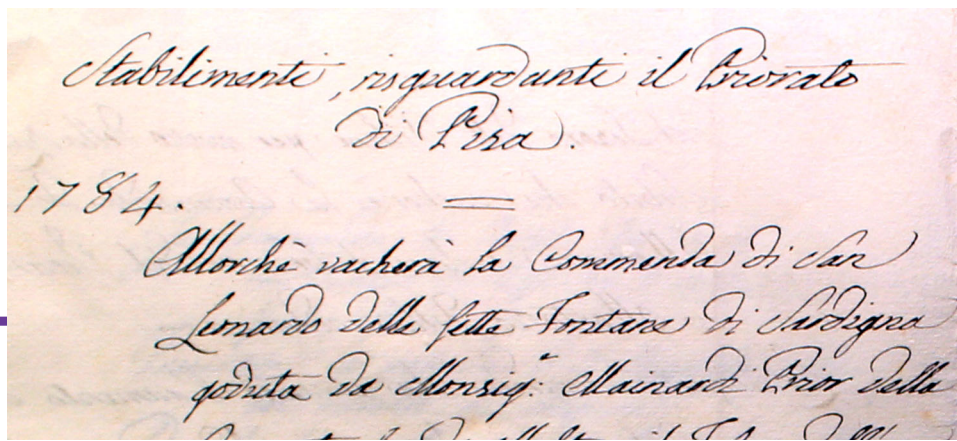 Stabilimenti, risguardanti il Priorato
di Pisa.
1784.
Allorchè vacherà la Commenda di San
Leonardo delle sette Fontane di Sardigna
goduta da Monsig.r Mainardi Prior della